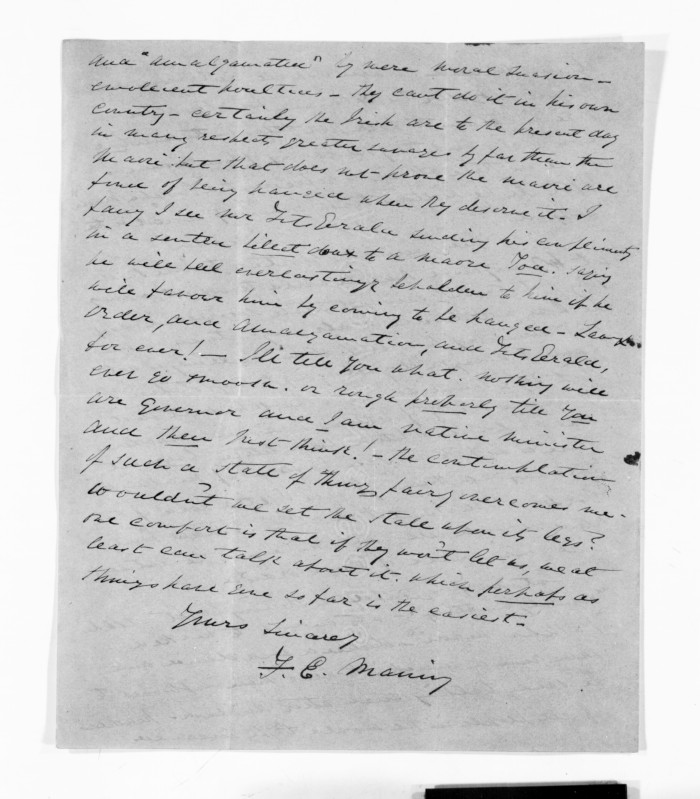 and "amalgamated" by mere moral suasion -
emolient poultices - they cant do it in his own
country - certainly the Irish are to the present day
in many respects greater savages by far than the
Maori but that does not prove the maori are
fond of being hanged when they deserve it. I
fancy I see Mr FitzGerald sending his compliments
in a scented billet doux to a maori Toa. saying
he will feel everlastingly beholden to him if he
will favour him by coming to be hanged - Law
order, and amalgamation, and FitzGerald,
for ever! - I'll tell you what. nothing will
ever go smooth. or rough properly till You
are Governor and I am native minister
and then just think! - the contemplation
of such a state of things fairly overcomes me -
wouldn't we set the state upon its legs?
one comfort is that if they won't let us, we at
least can talk about it. which perhaps as
things have gone so far is the easiest -
Yours Sincerely
F. E. Maning